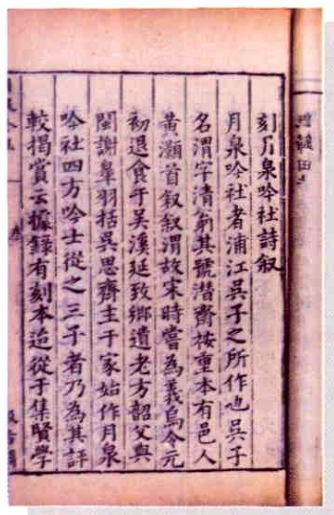 刻月泉吟社詩叙
月泉吟社者浦江吳子之所作也吳子
名渭字清翁其號潛齋按重本有邑人
黃灝首叙叙渭故宋時嘗為義烏令元
初退食于吳溪延致鄉遺老方韶父與
閩謝皐羽括吳思齊主于家始作月泉
吟社四方吟士從之三子者乃為其評
較揭賞云據錄有刻本迨從于集賢學